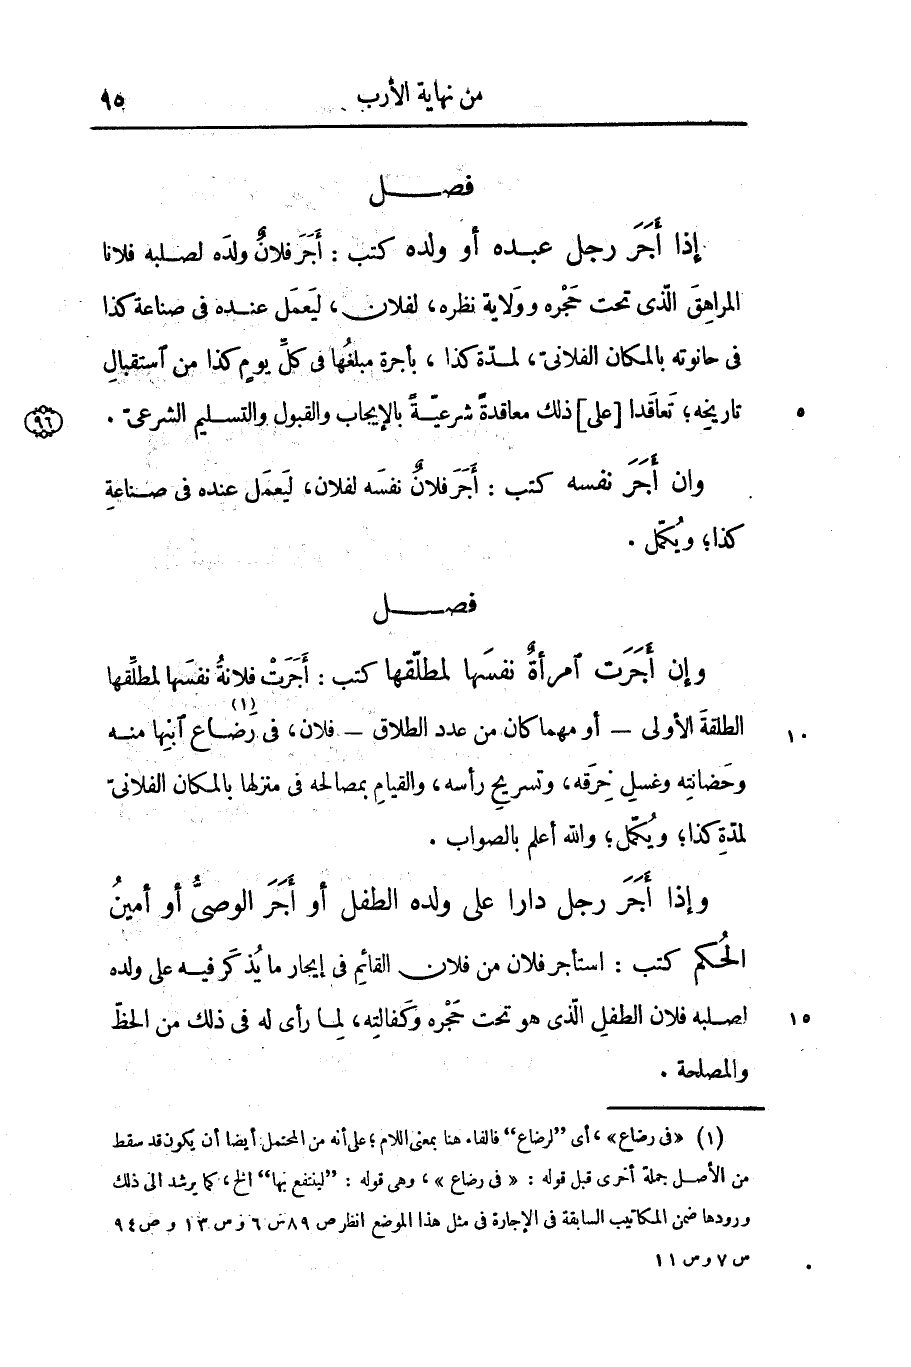 من نهاية الأرب ٩٥
فصــل
إذا أَجَرَ رجل عبده أو ولده كتب : أَجَرَ فلانٌ ولدَه لصلبه فلانا
المراهِقَ الّذى تحت حَجْره ووَلاية نظره، لفلان، ليَعمَل عنده فى صناعة كذا
فى حانوته بالمكان الفلانىّ، لمدّة كذا ، بأجرة مبلغُها فى كلِّ يومٍ كذا من ٱستقبالِ
تاريخِه؛ تَعاقَدا [على] ذلك معاقدةً شرعيّةً بالإيجاب والقبول والتسليم الشرعىّ . ٥
٩٦
وان أَجَرَ نفسه كتب : أَجَرَ فلانٌ نفسَه لفلان، ليَعمَل عنده فى صناعةِ
كذا؛ ويُكمّل .
فصــل
وإن أَجَرَت ٱمرأةٌ نفسَها لمطلّقها كتب : أَجَرَتْ فلانةُ نفسَها لمطلِّقها
الطلقةَ الأولى — أو مهما كان من عدد الطلاق — فلان، فى رَضاع (١) ٱبنِها منه ١٠
وحَضانتِه وغسلِ خِرَقه، وتسريحِ رأسه، والقيامِ بمصالحه فى منزلها بالمكان الفلانىّ
لمدّةِ كذا؛ ويُكمّل؛ والله أعلم بالصواب .
وإذا أَجَرَ رجل دارا على ولده الطفل أو أَجَرَ الوصىُّ أو أمينُ
الحُكم كتب : استأجر فلان من فلان القائمِ فى إيجار ما يُذكَر فيه على ولده
لصلبه فلان الطفلِ الّذى هو تحت حَجْره وكَفالتِه، لِما رأى له فى ذلك من الحظّ ١٥
والمصلحة .
(١) «فى رضاع»، أى "لرضاع" فالفاء هنا بمعنى اللام؛ على أنه من المحتمل أيضا أن يكون قد سقط
من الأصل جملة أخرى قبل قوله : « فى رضاع »، وهى قوله : "لينتفع بها" الخ، كما يرشد الى ذلك
ورودها ضمن المكاتيب السابقة فى الإجارة فى مثل هذا الموضع انظر ص ٨٩ س ٦ وس ١٣ و ص ٩٤
س ٧ وس ١١